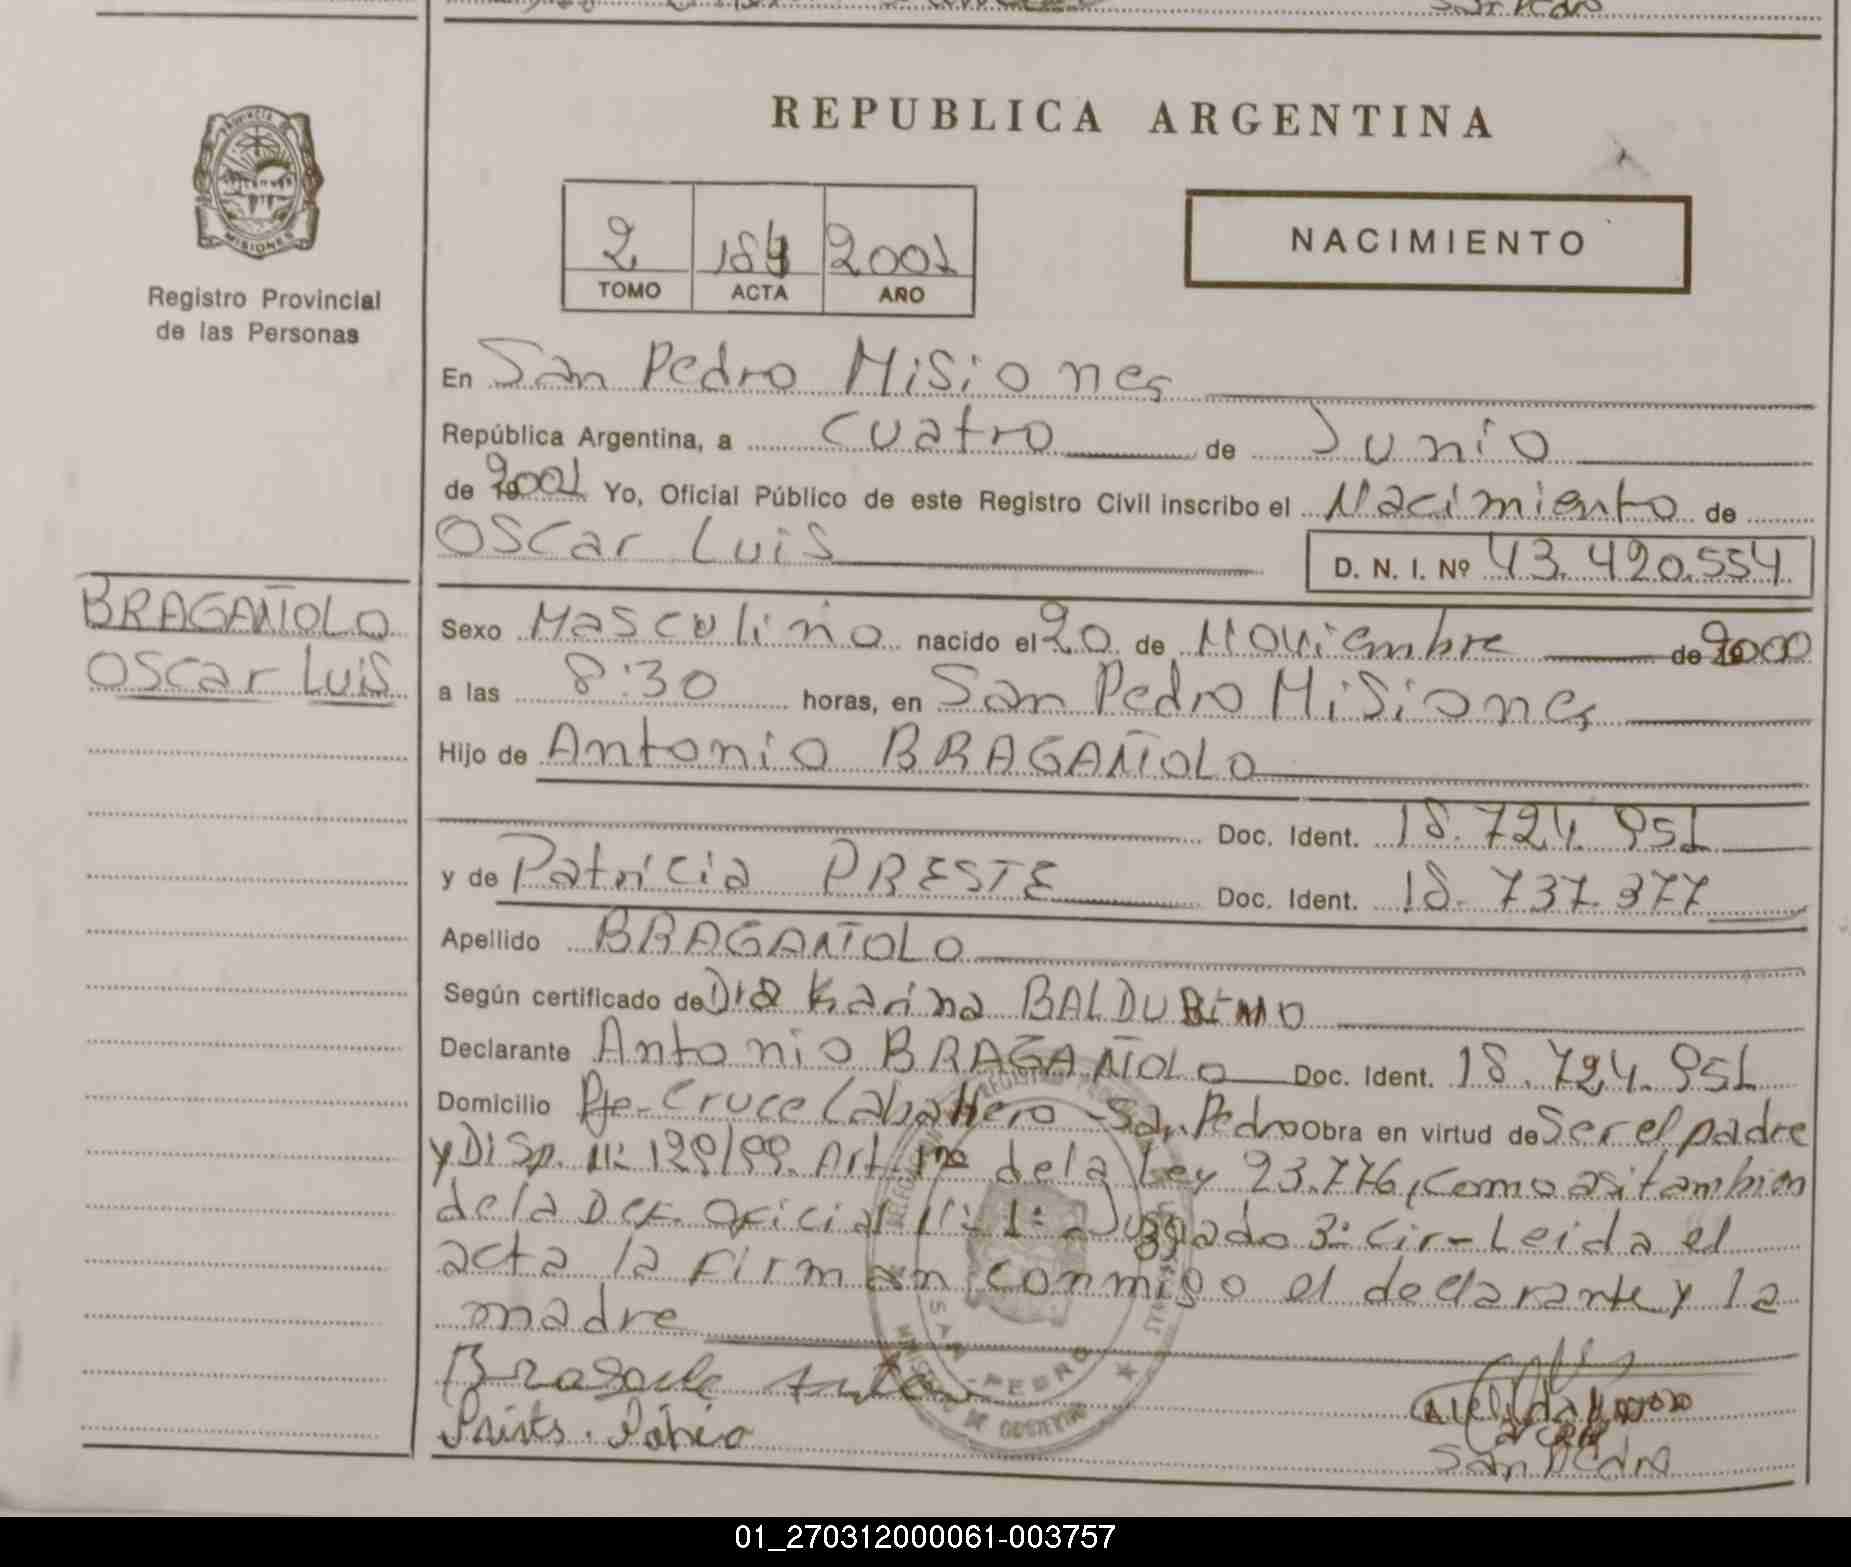 REPUBLICA ARGENTINA
PROVINCIA DE
MISIONES
Registro Provincial
de las Personas
2 184 2001
TOMO ACTA AÑO
NACIMIENTO
En San Pedro Misiones
República Argentina, a cuatro de Junio
de 2001 Yo, Oficial Público de este Registro Civil inscribo el Nacimiento de
Oscar Luis
D. N. I. Nº 43.420.554
BRAGAÑOLO
Oscar Luis
Sexo Masculino nacido el 20 de Noviembre de 2000
a las 8:30 horas, en San Pedro Misiones
Hijo de Antonio BRAGAÑOLO
Doc. Ident. 18.724.951
y de Patricia PRESTE Doc. Ident. 18.737.377
Apellido BRAGAÑOLO
Según certificado de Dra Karina BALDU
Declarante Antonio BRAGAÑOLO Doc. Ident. 18.724.951
Domicilio Pje- Cruce Caballero - San Pedro Obra en virtud de Ser el padre
y Disp. Nº 129/99. Art. 1º de la Ley 23.776, como asi tambien
de la Def. Oficial Nº 1º Juzgado 3º Cir- Leida el
acta la firman conmigo el declarante y la
madre
San Pedro
SAN PEDRO
MINISTERIO DE GOBIERNO
01_270312000061-003757